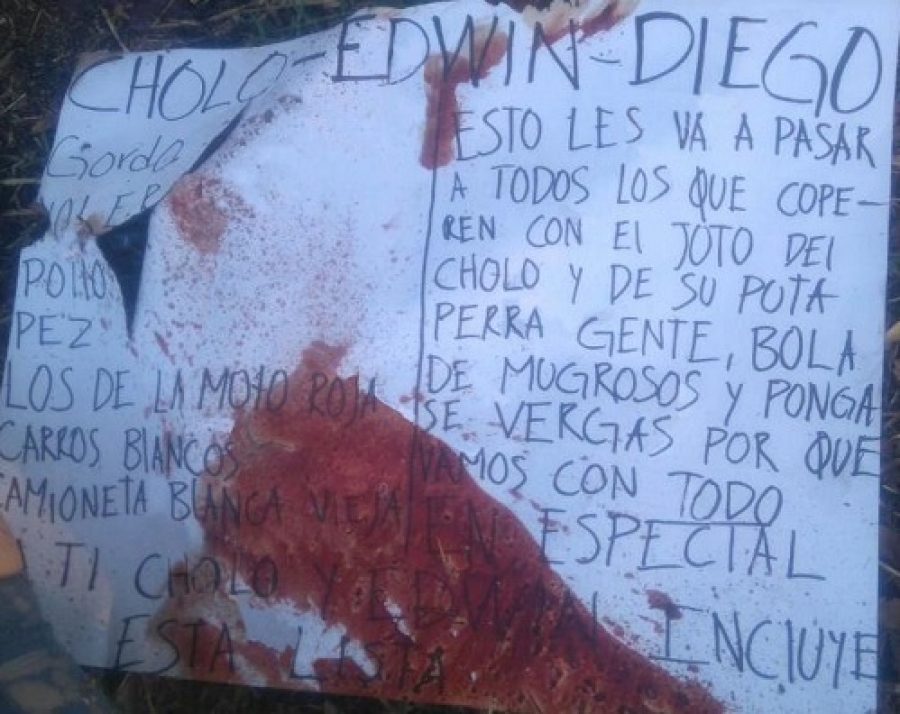 CHOLO-EDWIN-DIEGO
Gordo
POITOS
PEZ
LOS DE LA MOTO ROJA
CARROS BIANCOS
CAMIONETA BIANCA VIEJA
ESTO LES VA A PASAR
A TODOS LOS QUE COPE-
REN CON EI JOTO DEI
CHOLO Y DE SU PUTA
PERRA GENTE, BOLA
DE MUGROSOS Y PONGA
SE VERGAS POR QUE
VAMOS CON TODO
EN ESPECIAL
A TI CHOLO Y EDWIN INCIUYE
ESTA LISTA